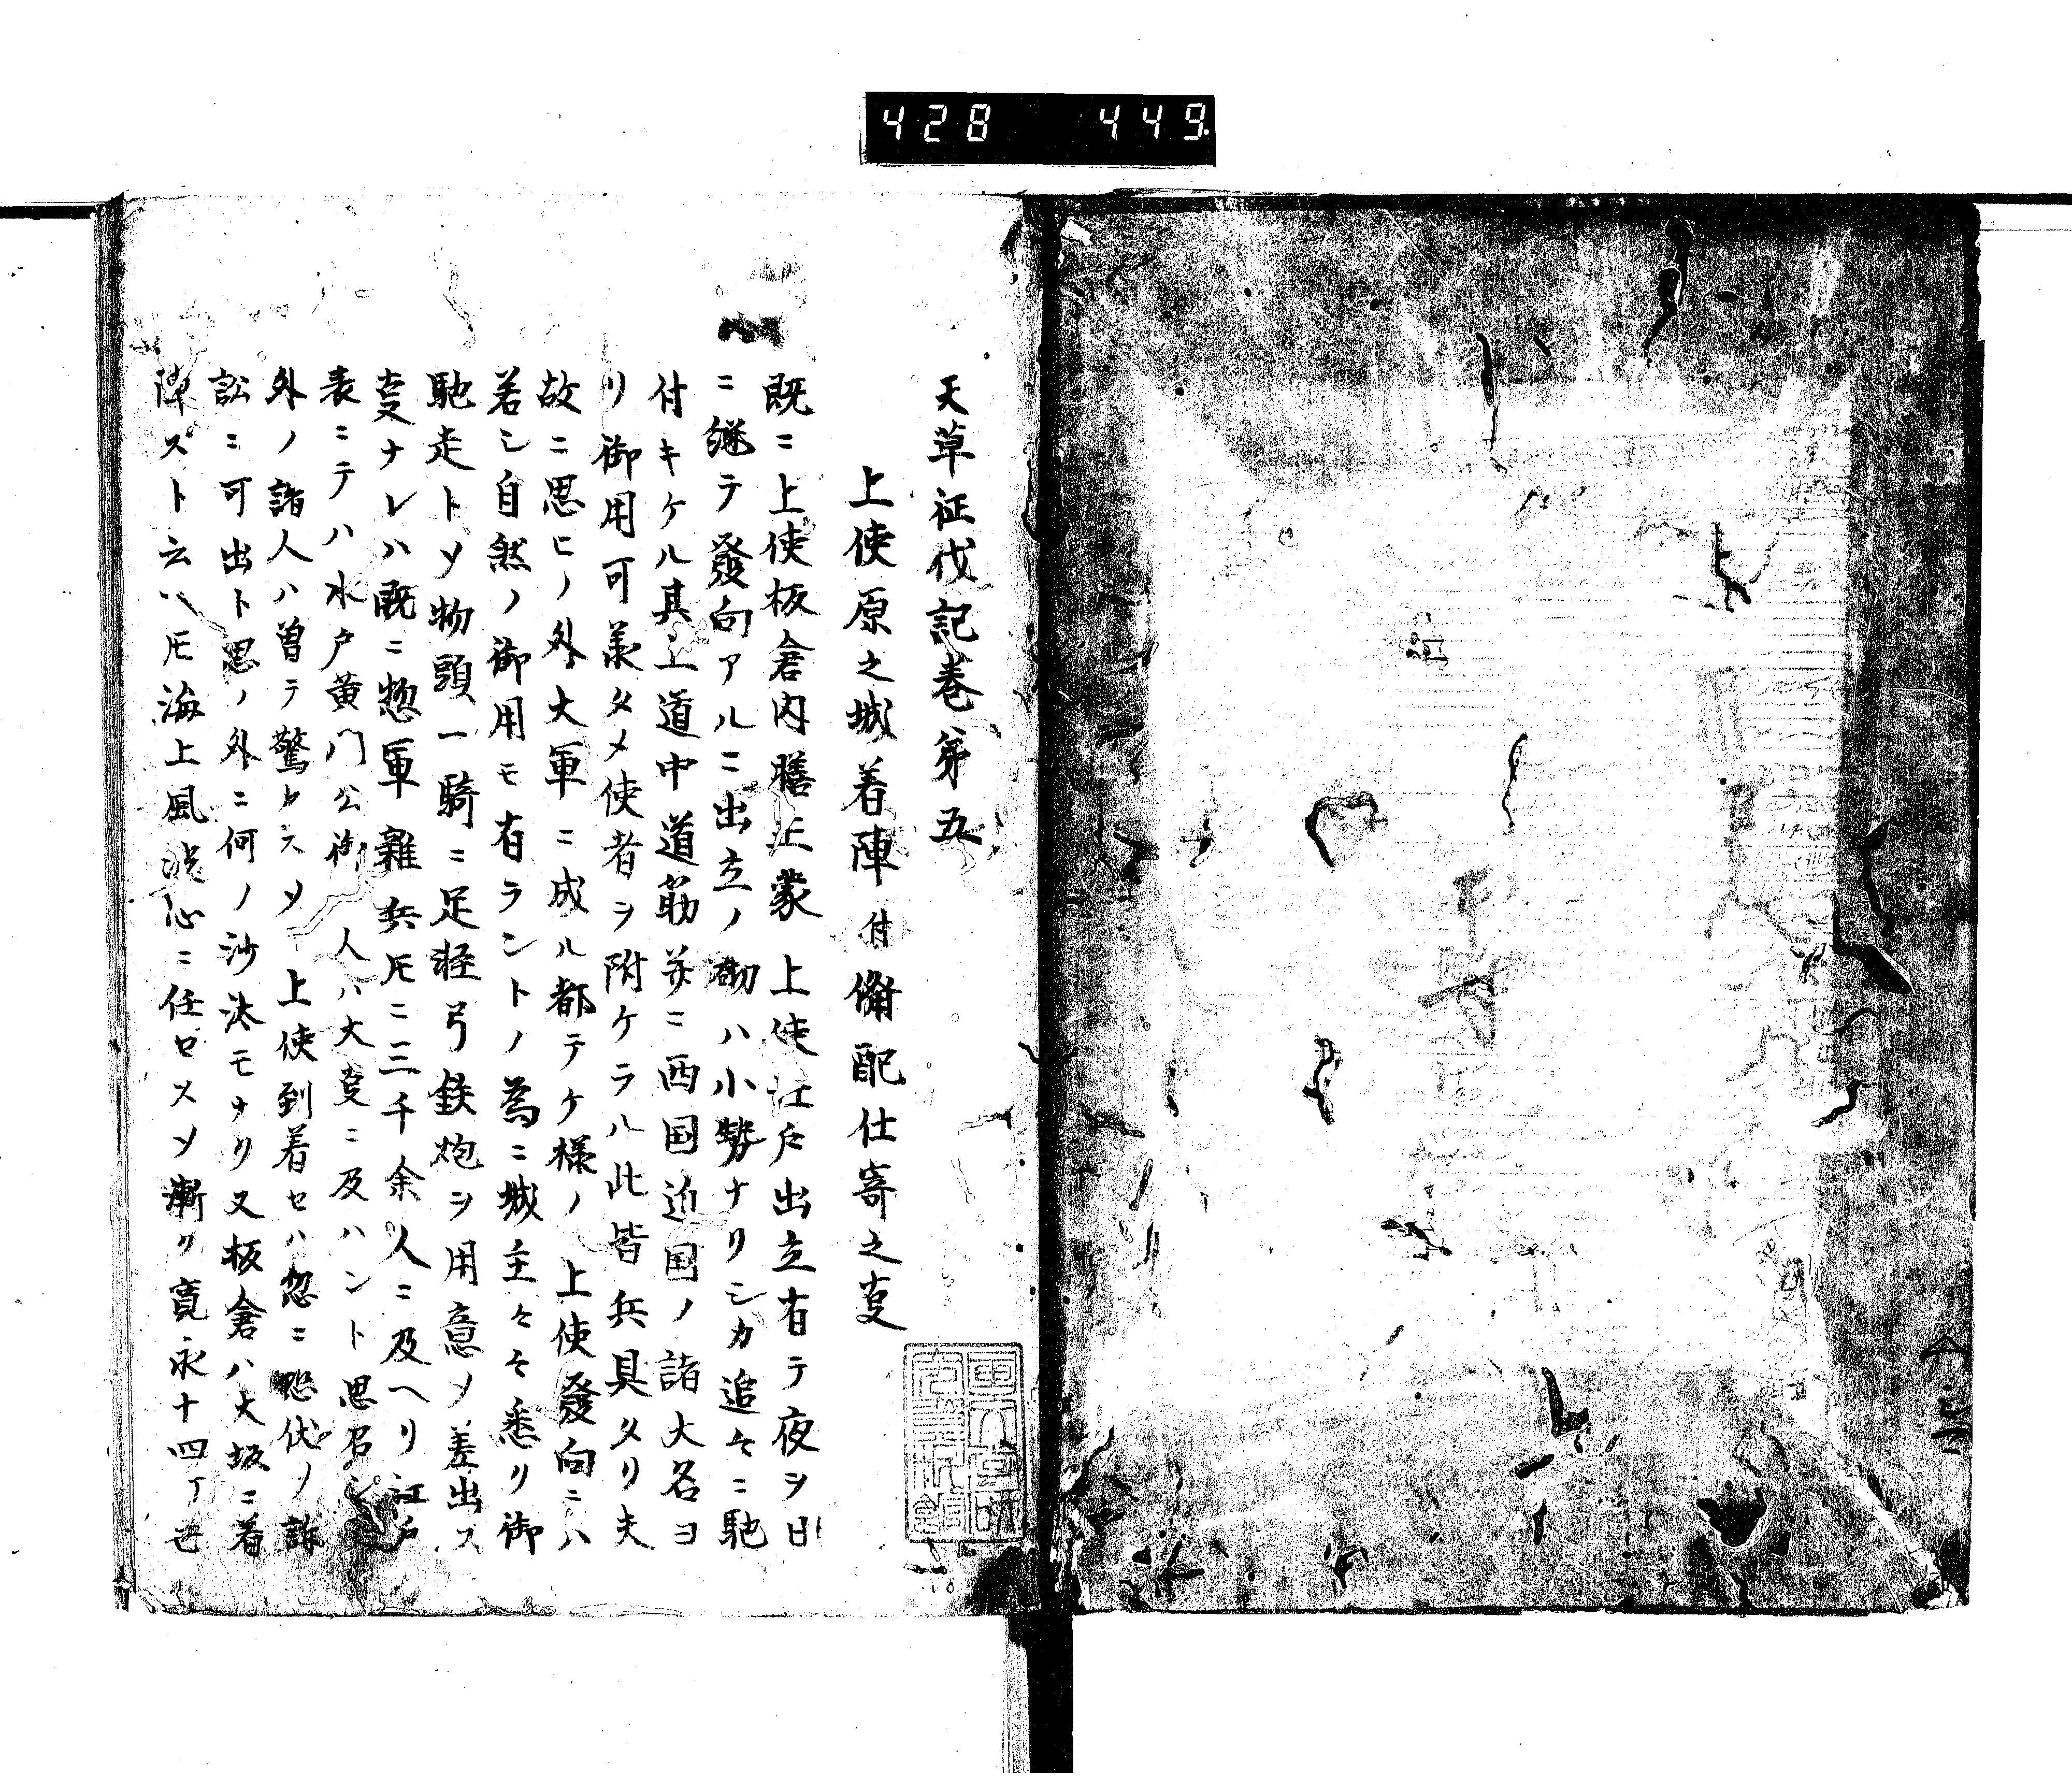 428 449
天草征伐記巻第五
上使原之城着陣付備配仕寄之㕝
既ニ上使板倉内膳正蒙上使江戸出立有テ夜ヲ日
ニ継テ發向アルニ出立ノ砌ハ小勢ナリシカ追々ニ馳
付キケル其上道中道筋并ニ西国近国ノ諸大名ヨ
リ御用可承タメ使者ヲ附ケラル此皆兵具タリ夫
故ニ思ヒノ外大軍ニ成ル都テケ様ノ上使發向ニハ
若シ自然ノ御用モ有ラントノ為ニ城主々々悉リ御
馳走トソ物頭一騎ニ足軽弓鉄炮ヲ用意ノ差出ス
㕝ナレハ既ニ惣軍雜兵𪜈ニ三千余人ニ及ヘリ江戸
表ニテハ水戸黄門公御 人ハ大㕝ニ及ハント思召
外ノ諸人ハ曽テ驚カスソ上使到着セハ忽ニ恐伏ノ訴
訟ニ可出ト思ノ外ニ何ノ沙汰モナリ又板倉ハ大坂ニ着
陣ストト云ハ𪜈海上風波心ニ任ロスソ漸ク寛永十四丁